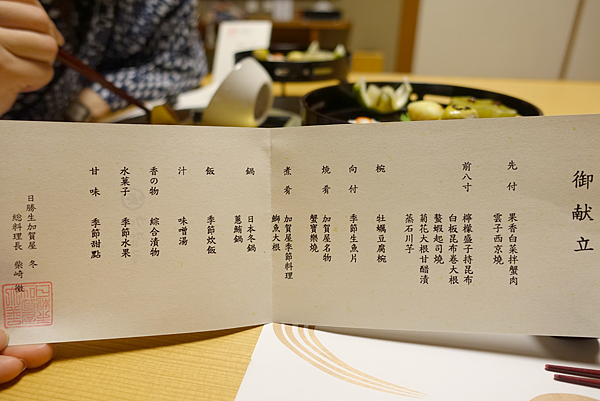 御献立
先付 果香白菜拌蟹肉
雲子西京燒
前八寸 檸檬盛子持昆布
白板昆布卷大根
螯蝦起司燒
菊花大根甘醋漬
蒸石川芋
椀 牡蠣豆腐椀
向付 季節生魚片
燒肴 加賀屋名物
蟹寶樂燒
煮肴 加賀屋季節料理
鰤魚大根
鍋 日本冬鍋
蔥鮪鍋
飯 季節炊飯
汁 味噌湯
香の物 綜合漬物
水菓子 季節水果
甘味 季節甜點
日勝生加賀屋 冬
總料理長 柴崎 徹